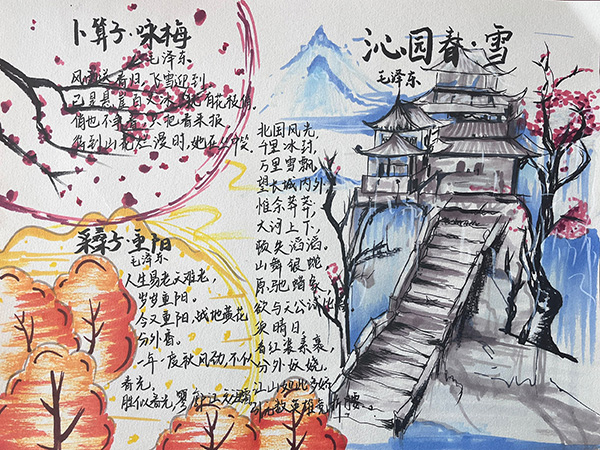 卜算子·咏梅
毛泽东
风雨送春归,飞雪迎到
已是悬崖百丈冰,犹有花枝俏。
俏也不争春,只把春来报
待到山花烂漫时,她在丛中笑
采桑子·重阳
毛泽东
人生易老天难老,
岁岁重阳。
今又重阳,战地黄花
分外香。
一年一度秋风劲,不似
春光。
胜似春光,寥廓江天万里霜
沁园春·雪
毛泽东
北国风光,
千里冰封,
万里雪飘,
望长城内外,
惟余莽莽;
大河上下,
顿失滔滔。
山舞银蛇
原驰蜡象
欲与天公试比
须晴日,
看红装素裹,
分外妖娆。
江山如此多娇
引无数英雄竞折腰。